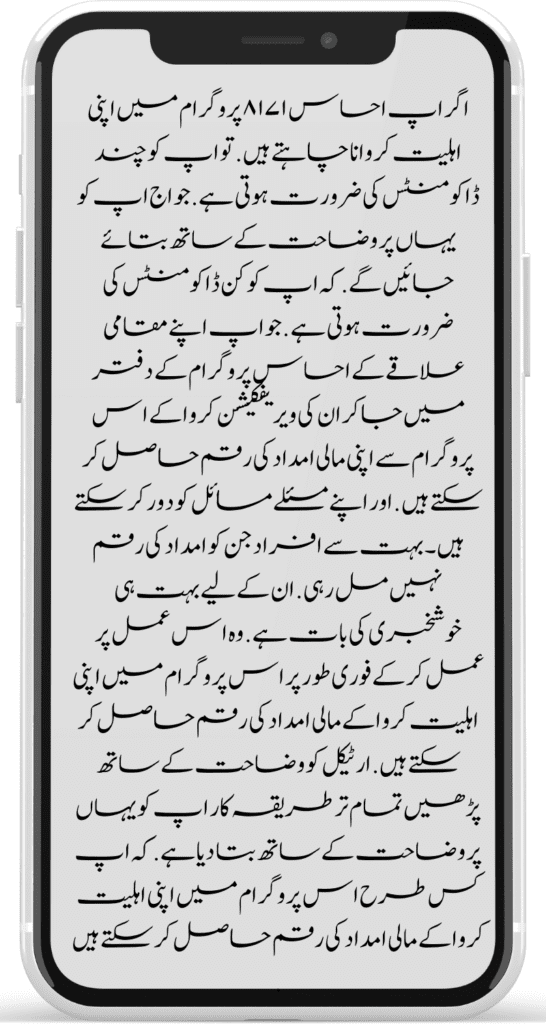 اگر اپ احساس ۸۱۷۱ پروگرام میں اپنی
اہلیت کروانا چاہتے ہیں. تو اپ کو چند
ڈاکومنٹس کی ضرورت ہوتی ہے. جو اج اپ کو
یہاں پر وضاحت کے ساتھ بتائے
جائیں گے. کہ اپ کو کن ڈاکومنٹس کی
ضرورت ہوتی ہے. جو اپ اپنے مقامی
علاقے کے احساس پروگرام کے دفتر
میں جا کر ان کی ویریفکیشن کروا کے اس
پروگرام سے اپنی مالی امداد کی رقم حاصل کر
سکتے ہیں. اور اپنے مسئلے مسائل کو دور کر سکتے
ہیں۔ بہت سے افراد جن کو امداد کی رقم
نہیں مل رہی. ان کے لیے بہت ہی
خوشخبری کی بات ہے. وہ اس عمل پر
عمل کر کے فوری طور پر اس پروگرام میں اپنی
اہلیت کروا کے مالی امداد کی رقم حاصل کر
سکتے ہیں. ارٹیکل کو وضاحت کے ساتھ
پڑھیں تمام تر طریقہ کار اپ کو یہاں
پر وضاحت کے ساتھ بتا دیا ہے. کہ اپ
کس طرح اس پروگرام میں اپنی اہلیت
کروا کے مالی امداد کی رقم حاصل کر سکتے ہیں